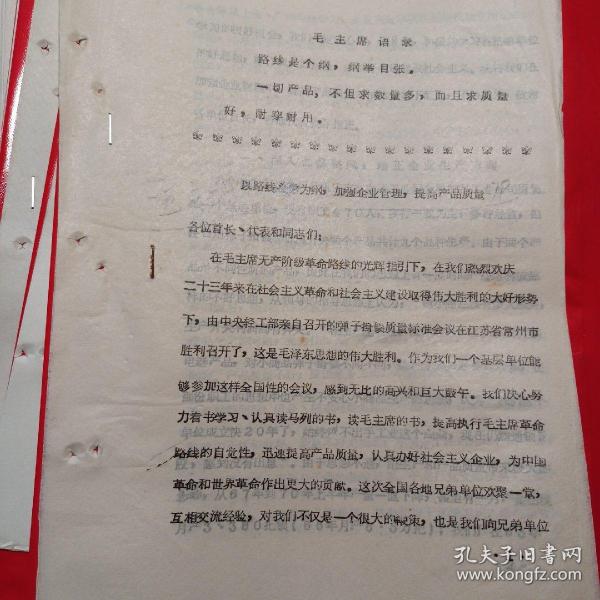 毛主席语录
路线是个纲，纲举目张。
一切产品，不但求数量多，而且求质量
好，耐穿耐用。
以路线为纲，加强企业管理，提高产品质量
各位首长、代表和同志们：
在毛主席无产阶级革命路线的光辉指引下，在我们热烈欢庆
二十三年来在社会主义革命和社会主义建设取得伟大胜利的大好形势
下，由中央轻工部亲自召开的弹子挂锁质量标准会议在江苏省常州市
胜利召开了，这是毛泽东思想的伟大胜利。作为我们一个基层单位能
够参加这样全国性的会议，感到无比的高兴和巨大鼓午。我们决心努
力看书学习、认真读马列的书，读毛主席的书，提高执行毛主席革命
路线的自觉性，迅速提高产品质量，认真办好社会主义企业，为中国
革命和世界革命作出更大的贡献。这次全国各地兄弟单位欢聚一堂，
互相交流经验，对我们不仅是一个很大的鞭策，也是我们向兄弟单位
孔夫子旧书网
www.kongfz.com